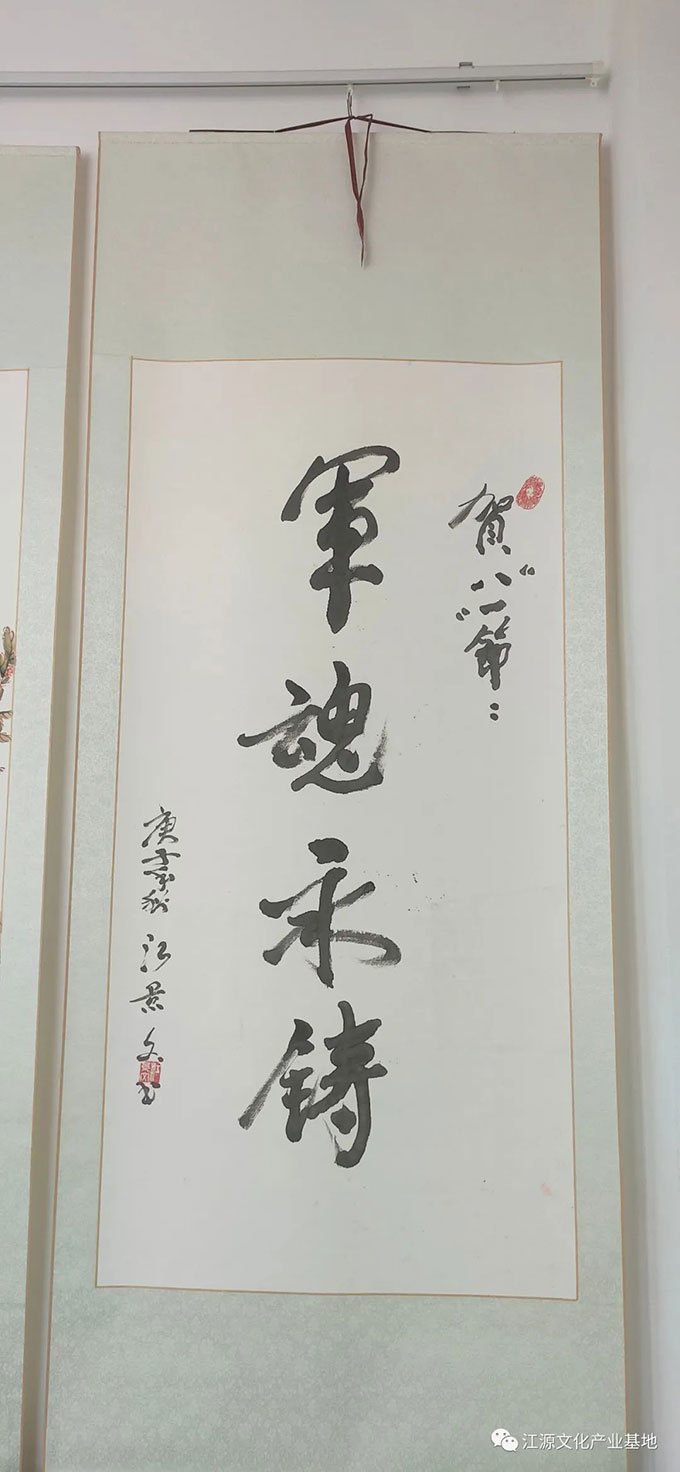 賀“八一”節：
軍魂永铸
庚子孟秋 江景文书
江源文化产业基地